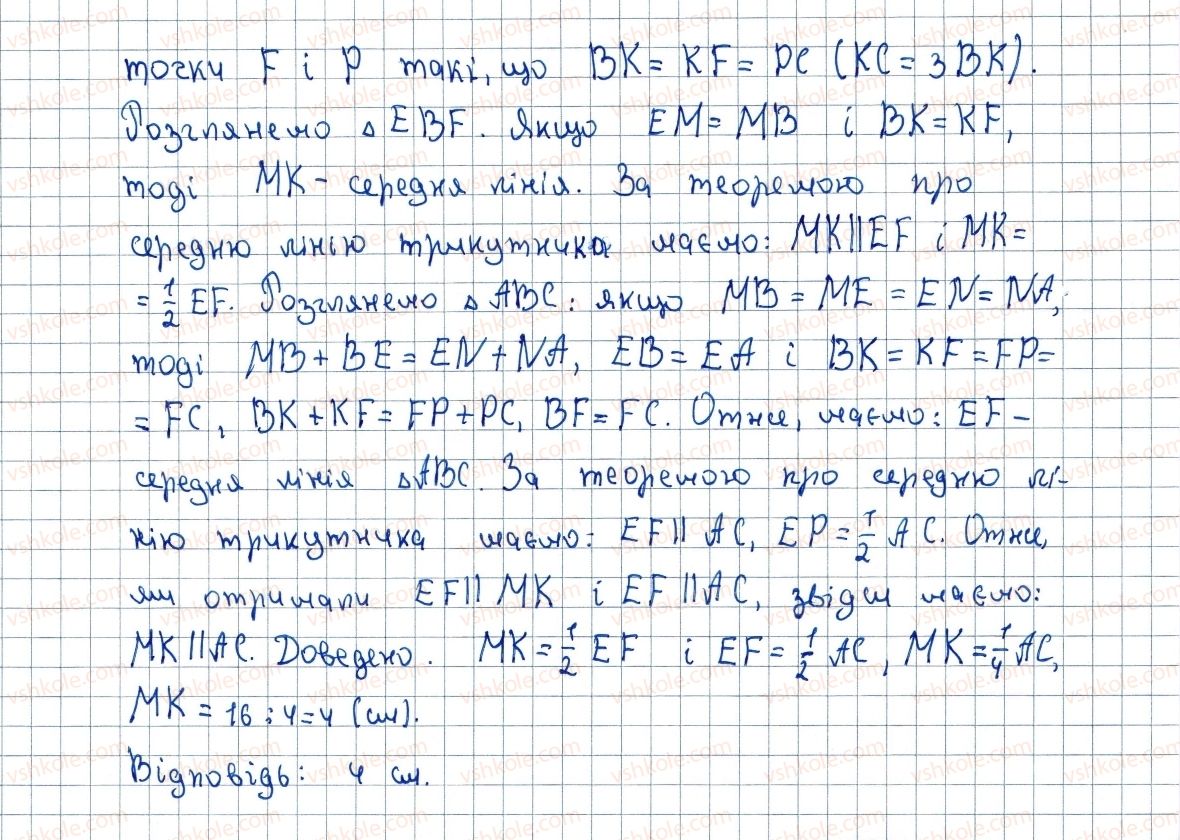 точки F і P такі, що BK = KF = PC (KC = 3BK).
Розглянемо △EBF. Якщо EM = MB і BK = KF,
тоді MK - середня лінія. За теоремою про
середню лінію трикутника маємо: MK || EF і MK =
= 1/2 EF. Розглянемо △ABC: якщо MB = ME = EN = NA,
тоді MB + BE = EN + NA, EB = EA і BK = KF = FP =
= FC, BK + KF = FP + PC, BF = FC. Отже, маємо: EF -
середня лінія △ABC. За теоремою про середню лі-
нію трикутника маємо: EF || AC, EP = 1/2 AC. Отже,
ми отримали EF || MK і EF || AC, звідси маємо:
MK || AC. Доведено. MK = 1/2 EF і EF = 1/2 AC, MK = 1/4 AC,
MK = 16 : 4 = 4 (см).
Відповідь: 4 см.